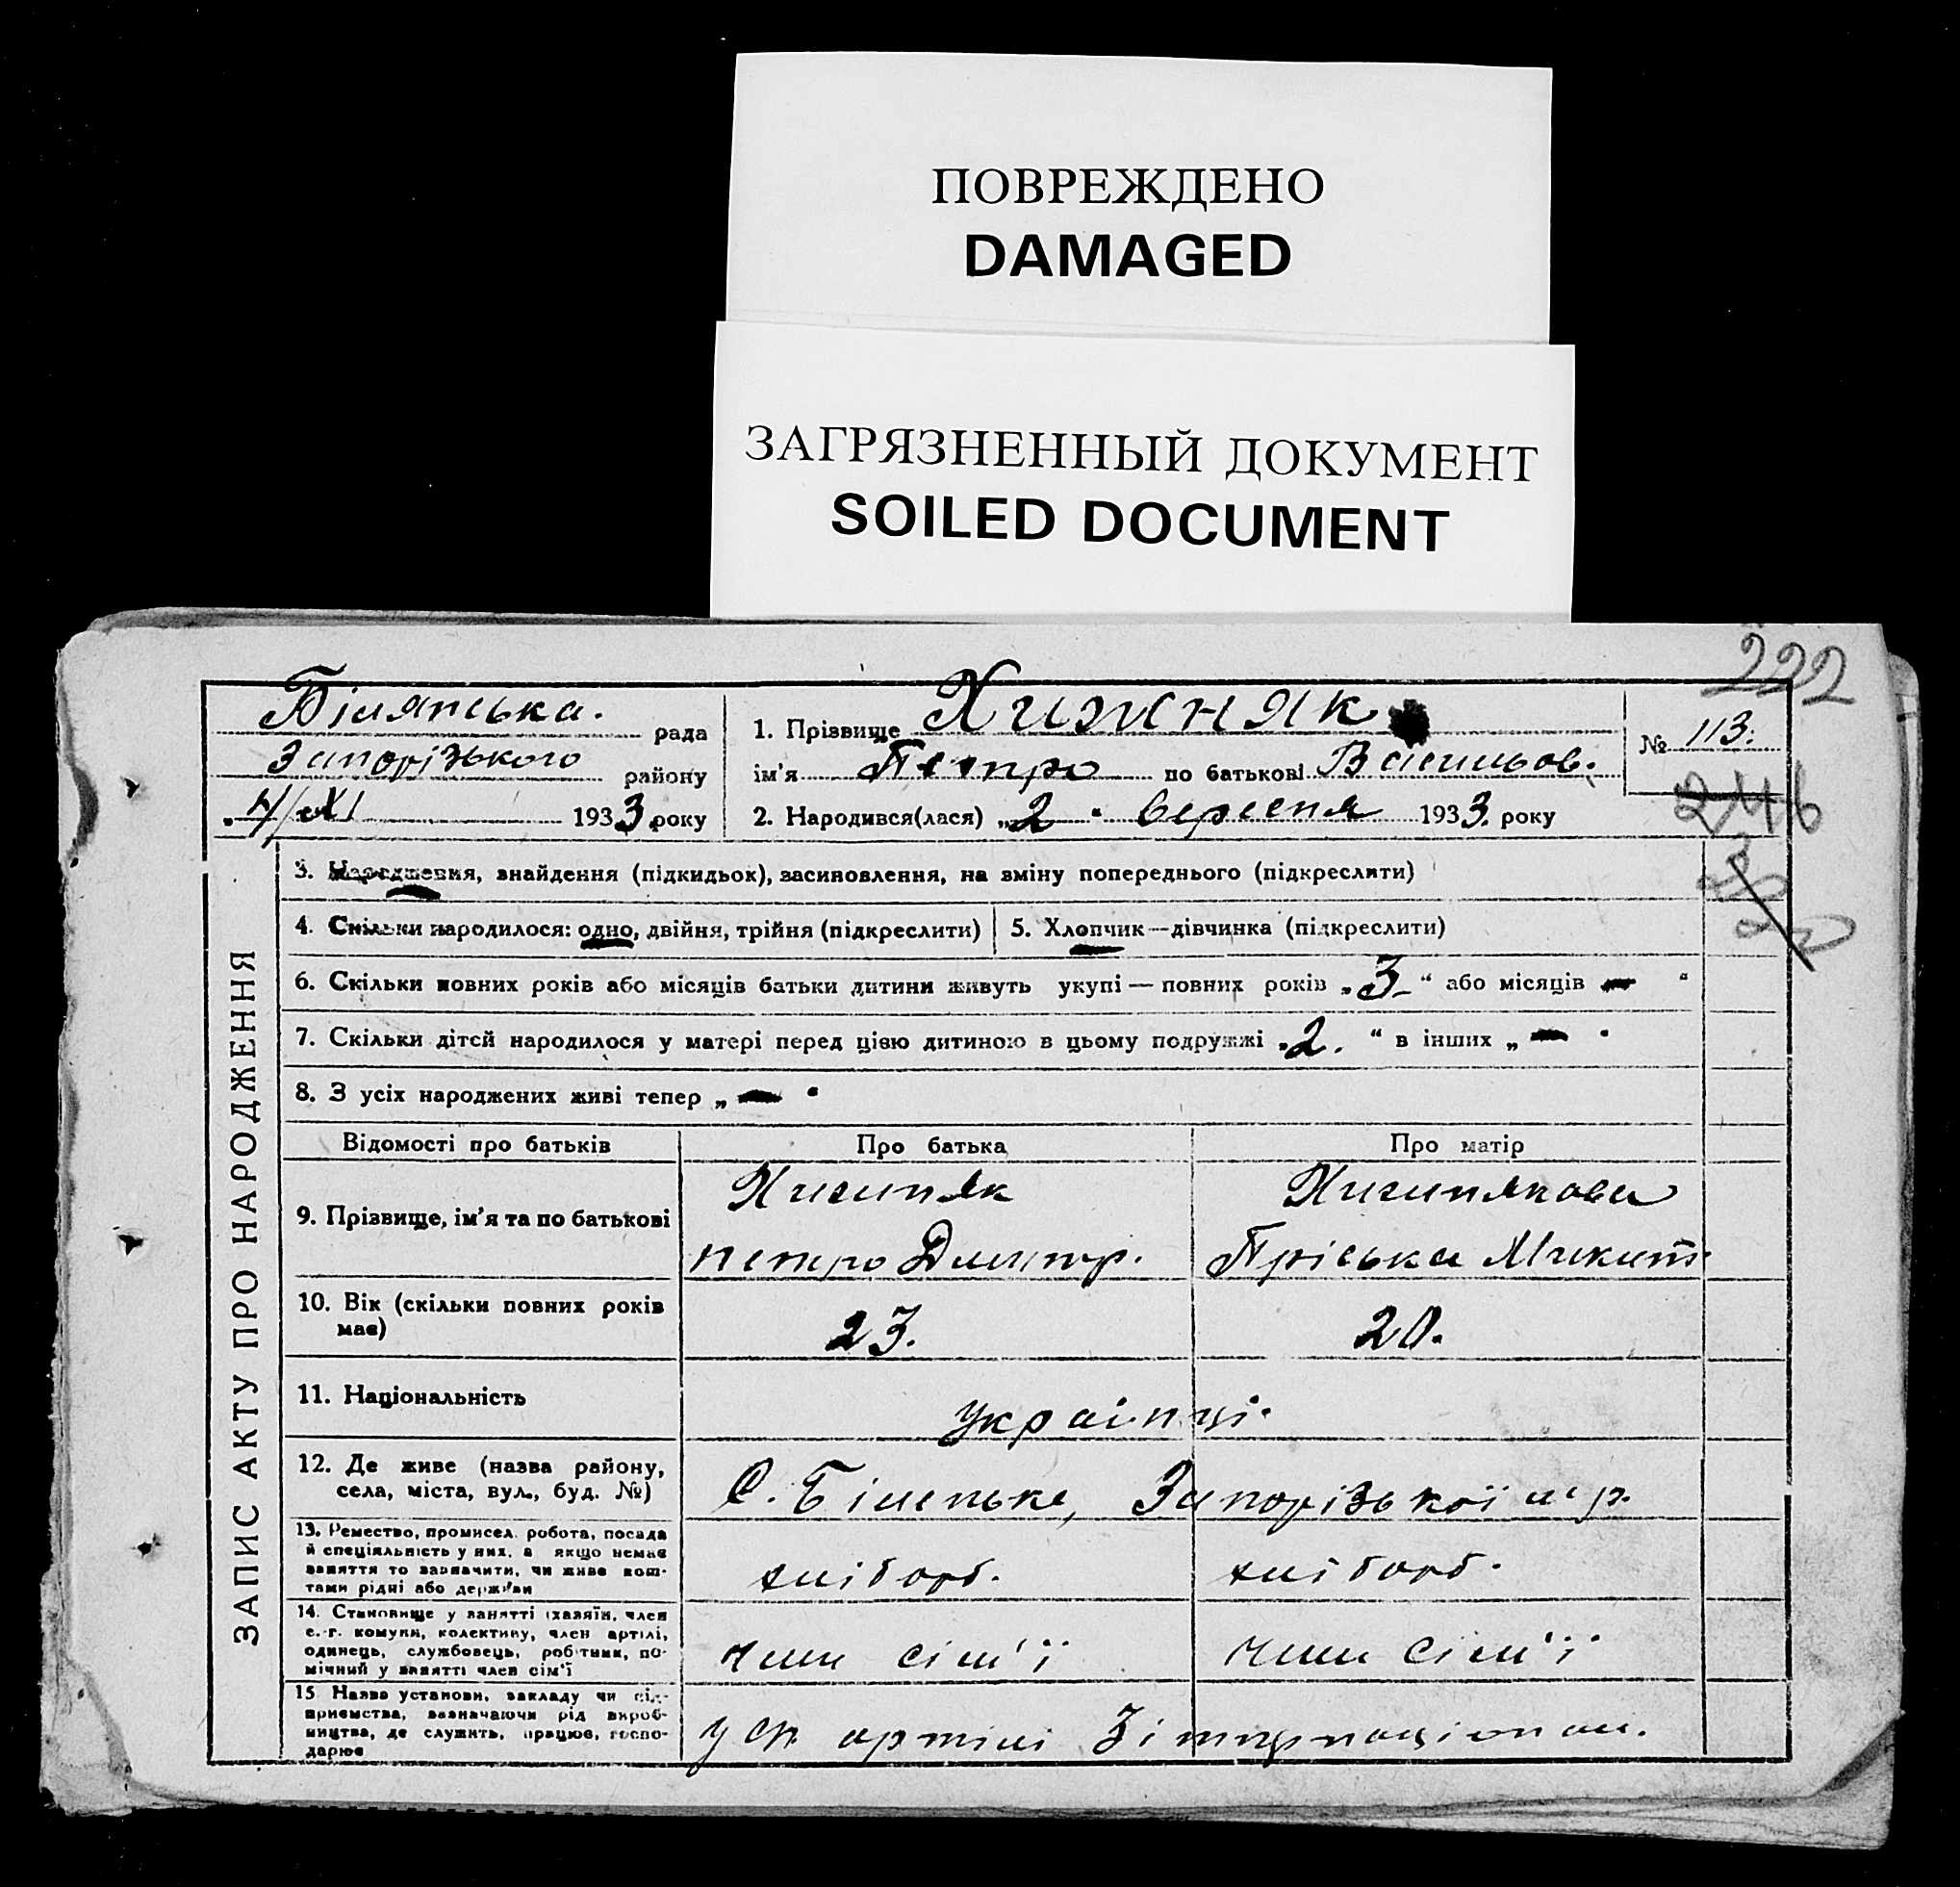 ПОВРЕЖДЕНО
DAMAGED
ЗАГРЯЗНЕННЫЙ ДОКУМЕНТ
SOILED DOCUMENT
222
Білянська. рада
Запорізького району
4/XI 1933 року
1. Прізвище Хижняк
ім'я Петро по батькові Васильов.
2. Народився(лася) „2“ вересня 1933. року
№ 113.
246
ЗАПИС АКТУ ПРО НАРОДЖЕННЯ
3. Народження, знайдення (підкидьок), засиновлення, на зміну попереднього (підкреслити)
4. Скільки народилося: одно, двійня, трійня (підкреслити)
5. Хлопчик—дівчинка (підкреслити)
6. Скільки повних років або місяців батьки дитини живуть укупі — повних років „3“ або місяців — “
7. Скільки дітей народилося у матері перед цією дитиною в цьому подружжі „2.“ в інших „—“
8. З усіх народжених живі тепер „—“
Відомості про батьків Про батька Про матір
9. Прізвище, ім'я та по батькові
Хижняк
петро Дмитр.
Хижнякова
Пріська Микит.
10. Вік (скільки повних років має)
23.
20.
11. Національність
українці.
12. Де живе (назва району, села, міста, вул., буд. №)
С. Біленьке, Запорізької м. р.
13. Ремество, промисел, робота, посада й спеціяльність у них, а якщо немає заняття то зазначити, чи живе коштами рідні або держави
хлібороб.
хлібороб.
14. Становище у занятті (хазяїн, член с.-г. комуни, колективу, член артілі, одинець, службовець, робітник, помічний у занятті член сім'ї
член сім'ї
член сім'ї
15 Назва установи, закладу чи підприємства, зазначаючи рід виробництва, де служить, працює, господарює
у с/г. артілі